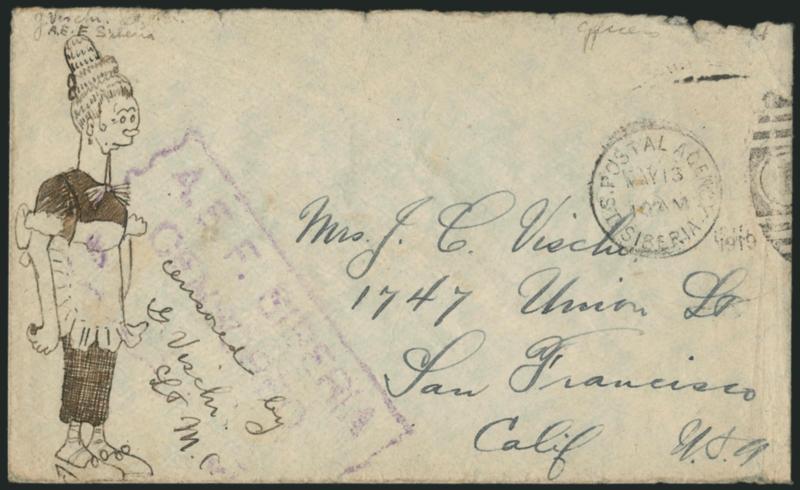 G. Vischi.
A.E.F Siberia
officers
U.S. POSTAL AGENCY
MAY 13
10 AM
SIBERIA
1919
A. E. F. SIBERIA
CENSORED
censored by
G. Vischi.
Lt. M. C.
Mrs. J. C. Vischi
1747 Union St
San Francisco
Calif U.S.A